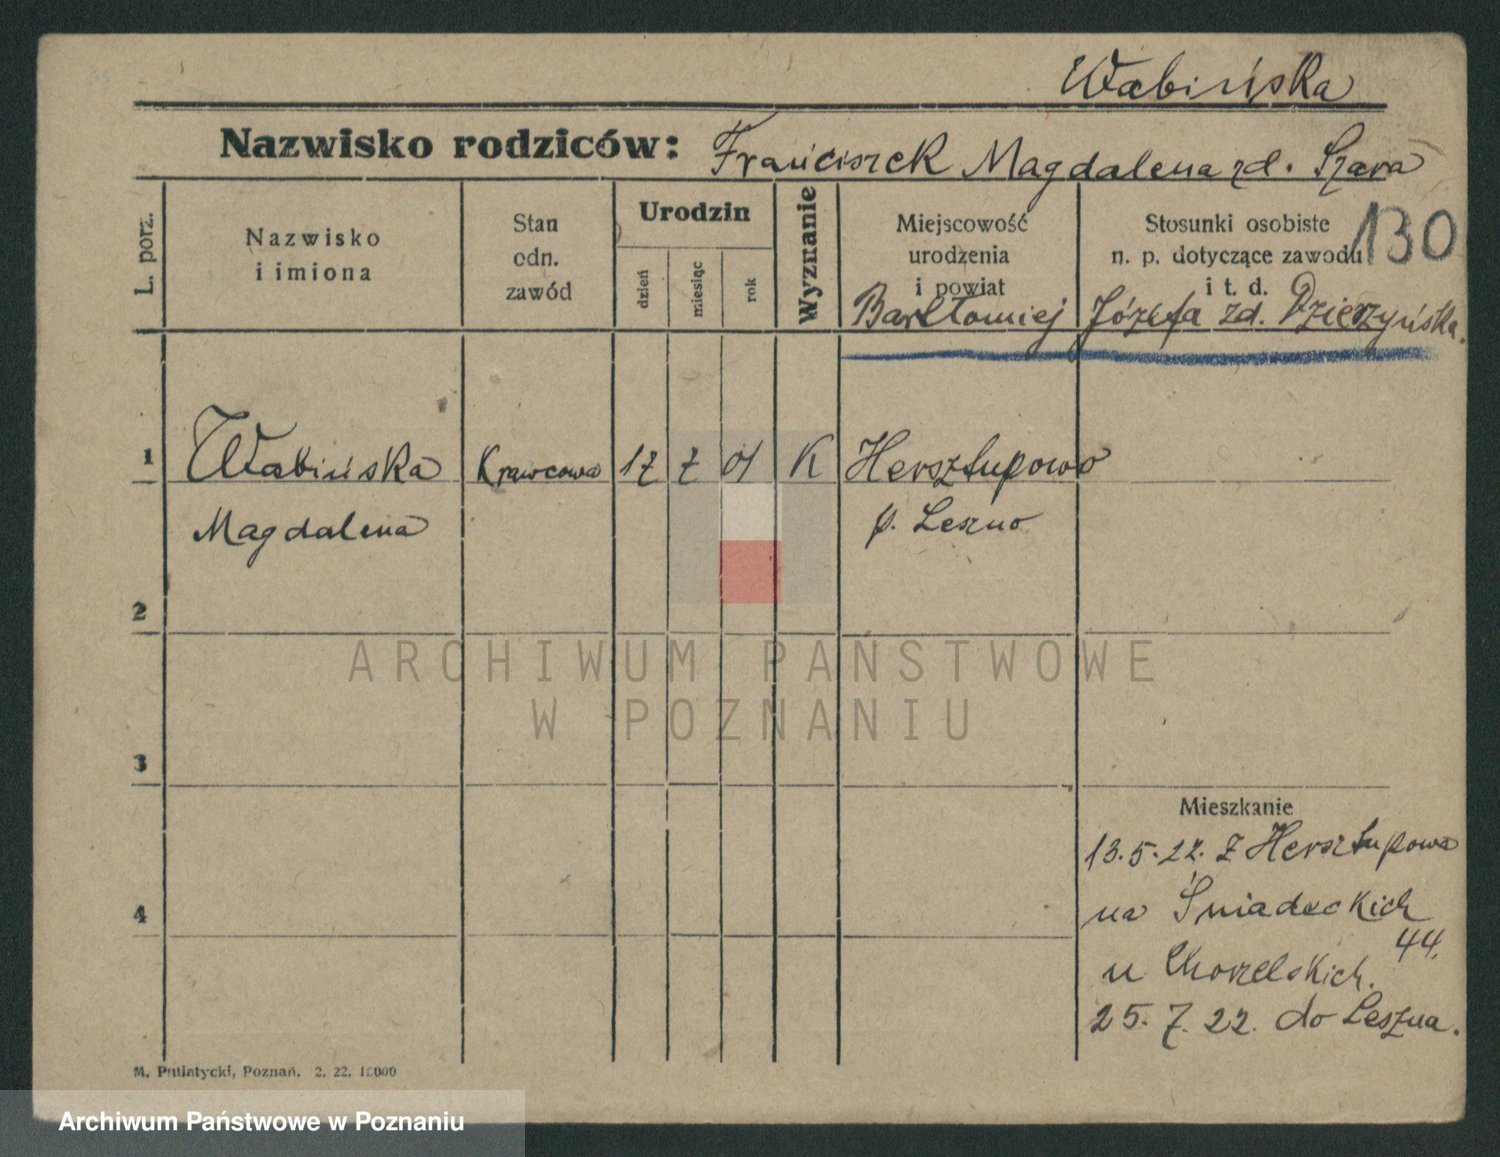 Wabińska
Nazwisko rodziców: Franciszek Magdalena zd. Szara
L. porz.
Nazwisko
i imiona
Stan
odn.
zawód
Urodzin
dzień
miesiąc
rok
Wyznanie
Miejscowość
urodzenia
i powiat
Stosunki osobiste
n. p. dotyczące zawodu
i t. d.
130
Bartłomiej Józefa zd. Dzierzyńska.
1 Wabińska Krawcowa 17 7 01 K Hersztupowo
Magdalena p. Leszno
2
ARCHIWUM PAŃSTWOWE
W POZNANIU
3
Mieszkanie
13.5.22. z Hersztupowa
4
na Śniadeckich
44.
u Chorzelskich.
25. 7. 22. do Leszna.
M. Putiatycki, Poznań. 2. 22. 10000
Archiwum Państwowe w Poznaniu